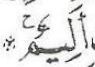 أَلِيمٌ ۚ